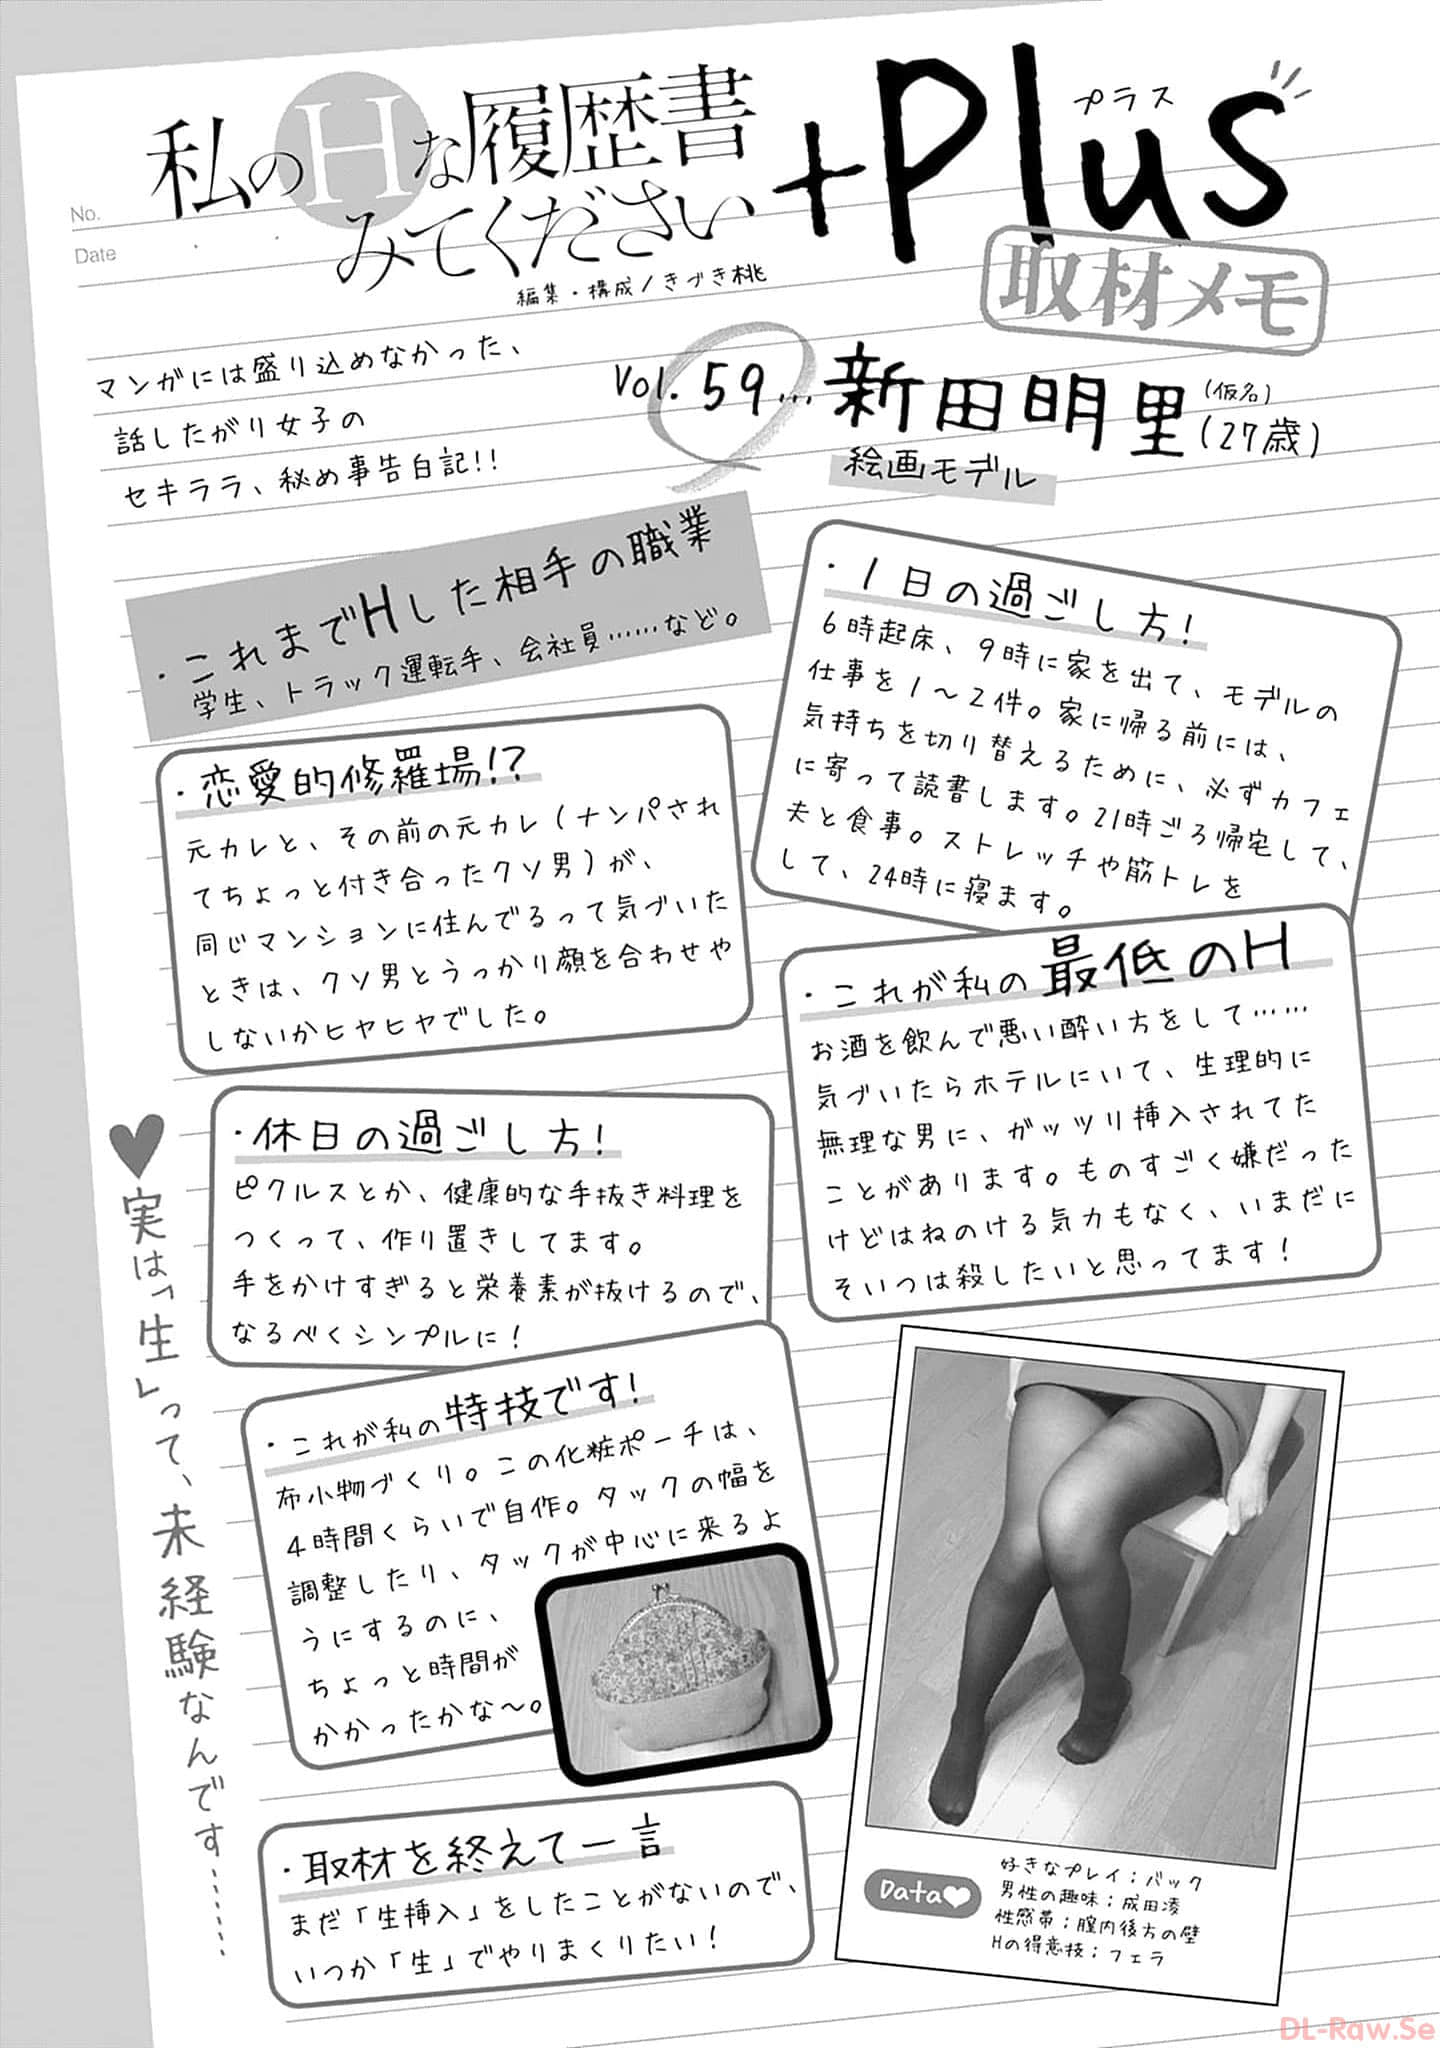 私のHな履歴書
みてください
+Plus
プラス
取材メモ
No.
Date
編集・構成/きづき桃
マンガには盛り込めなかった、
話したがり女子の
セキララ、秘め事告白記!!
Vol. 59…新田明里(仮名)(27歳)
絵画モデル
・これまでHした相手の職業
学生、トラック運転手、会社員……など。
・1日の過ごし方!
6時起床、9時に家を出て、モデルの
仕事を1〜2件。家に帰る前には、
気持ちを切り替えるために、必ずカフェ
に寄って読書します。21時ごろ帰宅して、
夫と食事。ストレッチや筋トレを
して、24時に寝ます。
・恋愛的修羅場!?
元カレと、その前の元カレ(ナンパされ
てちょっと付き合ったクソ男)が、
同じマンションに住んでるって気づいた
ときは、クソ男とうっかり顔を合わせや
しないかヒヤヒヤでした。
・これが私の最低のH
お酒を飲んで悪い酔い方をして……
気づいたらホテルにいて、生理的に
無理な男に、ガッツリ挿入されてた
ことがあります。ものすごく嫌だった
けどはねのける気力もなく、いまだに
そいつは殺したいと思ってます!
・休日の過ごし方!
ピクルスとか、健康的な手抜き料理を
つくって、作り置きしてます。
手をかけすぎると栄養素が抜けるので、
なるべくシンプルに!
・これが私の特技です!
布小物づくり。この化粧ポーチは、
4時間くらいで自作。タックの幅を
調整したり、タックが中心に来るよ
うにするのに、
ちょっと時間が
かかったかな〜。
♥実は「生」って、未経験なんです……
・取材を終えて一言
まだ「生挿入」をしたことがないので、
いつか「生」でやりまくりたい!
Data♥
好きなプレイ;バック
男性の趣味;成田凌
性感帯;膣内後方の壁
Hの得意技;フェラ
DL-Raw.Se